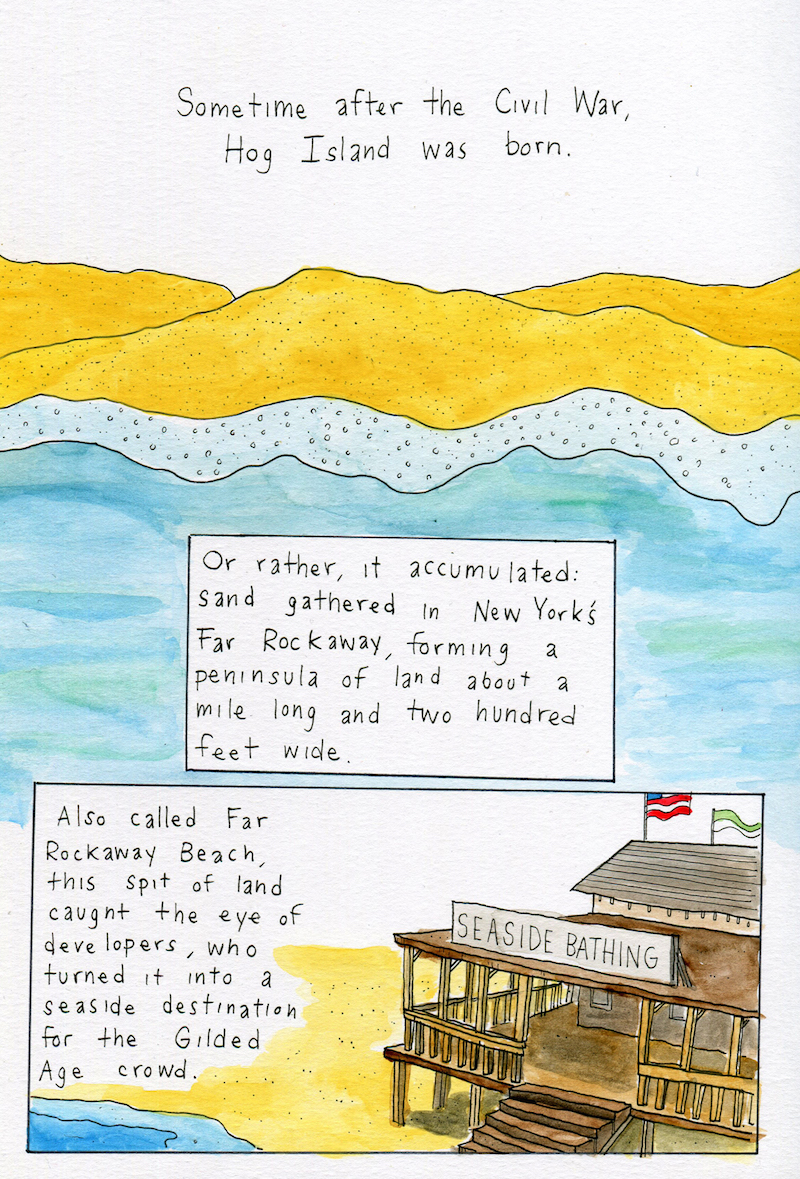 Sometime after the Civil War,
Hog Island was born.
Or rather, it accumulated:
sand gathered in New York's
Far Rockaway, forming a
peninsula of land about a
mile long and two hundred
feet wide.
Also called Far
Rockaway Beach,
this spit of land
caught the eye of
developers, who
turned it into a
seaside destination
for the Gilded
Age crowd.
SEASIDE BATHING